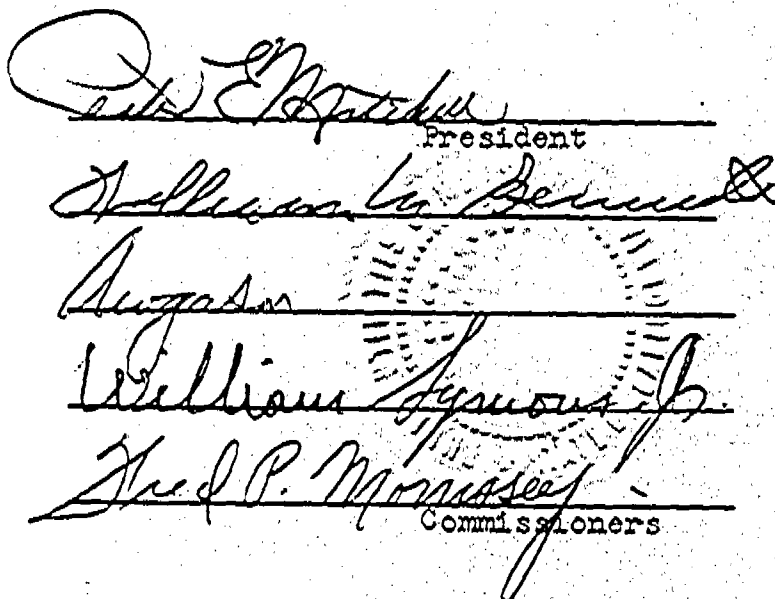 Peter E. Mitchell
President
William M. Bennett
William Symons Jr.
Fred P. Morrissey
Commissioners